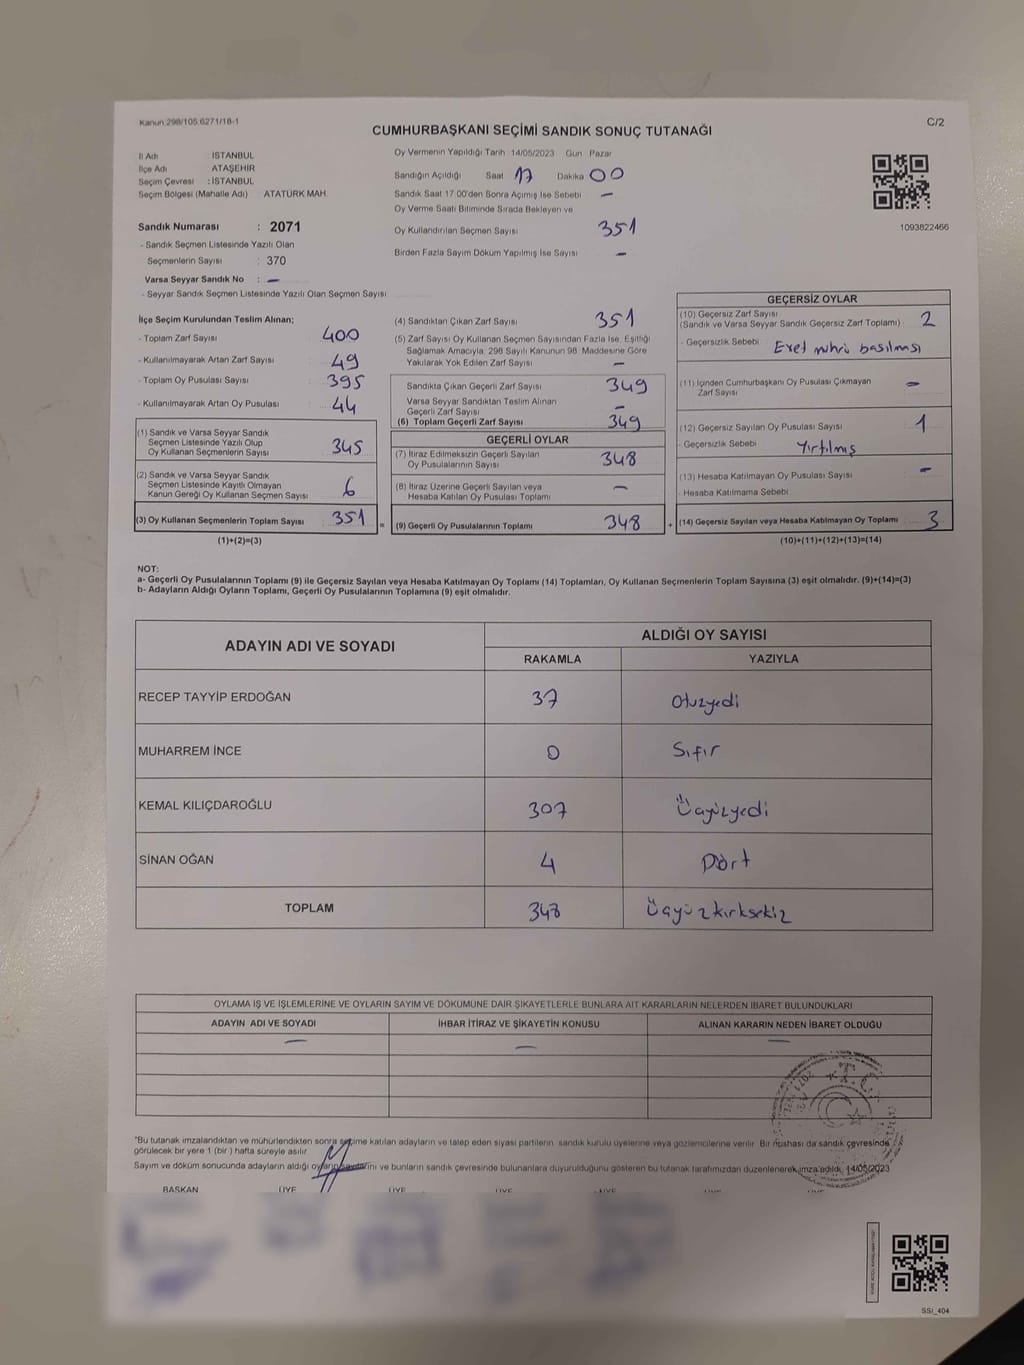 Kanun:298/105;6271/18-1
C/2
CUMHURBAŞKANI SEÇİMİ SANDIK SONUÇ TUTANAĞI
İl Adı : İSTANBUL
İlçe Adı : ATAŞEHİR
Seçim Çevresi : İSTANBUL
Seçim Bölgesi (Mahalle Adı) : ATATÜRK MAH.
Sandık Numarası : 2071
- Sandık Seçmen Listesinde Yazılı Olan
Seçmenlerin Sayısı : 370
Varsa Seyyar Sandık No : –
- Seyyar Sandık Seçmen Listesinde Yazılı Olan Seçmen Sayısı
Oy Vermenin Yapıldığı Tarih 14/05/2023 Gün Pazar
Sandığın Açıldığı Saat 17 Dakika 00
Sandık Saat 17:00'den Sonra Açılmış İse Sebebi –
Oy Verme Saati Bitiminde Sırada Bekleyen ve
Oy Kullandırılan Seçmen Sayısı 351
Birden Fazla Sayım Döküm Yapılmış İse Sayısı –
1093822466
İlçe Seçim Kurulundan Teslim Alınan;
- Toplam Zarf Sayısı 400
- Kullanılmayarak Artan Zarf Sayısı 49
- Toplam Oy Pusulası Sayısı 395
- Kullanılmayarak Artan Oy Pusulası 44
(1) Sandık ve Varsa Seyyar Sandık
Seçmen Listesinde Yazılı Olup
Oy Kullanan Seçmenlerin Sayısı 345
(2) Sandık ve Varsa Seyyar Sandık
Seçmen Listesinde Kayıtlı Olmayan
Kanun Gereği Oy Kullanan Seçmen Sayısı 6
(3) Oy Kullanan Seçmenlerin Toplam Sayısı 351
(1)+(2)=(3)
(4) Sandıktan Çıkan Zarf Sayısı 351
(5) Zarf Sayısı Oy Kullanan Seçmen Sayısından Fazla İse, Eşitliği
Sağlamak Amacıyla; 298 Sayılı Kanunun 98. Maddesine Göre
Yakılarak Yok Edilen Zarf Sayısı –
Sandıkta Çıkan Geçerli Zarf Sayısı 349
Varsa Seyyar Sandıktan Teslim Alınan
Geçerli Zarf Sayısı –
(6) Toplam Geçerli Zarf Sayısı 349
GEÇERLİ OYLAR
(7) İtiraz Edilmeksizin Geçerli Sayılan
Oy Pusulalarının Sayısı 348
(8) İtiraz Üzerine Geçerli Sayılan veya
Hesaba Katılan Oy Pusulası Toplamı –
= (9) Geçerli Oy Pusulalarının Toplamı 348 +
GEÇERSİZ OYLAR
(10) Geçersiz Zarf Sayısı
(Sandık ve Varsa Seyyar Sandık Geçersiz Zarf Toplamı) : 2
- Geçersizlik Sebebi Evet mührü basılması
(11) İçinden Cumhurbaşkanı Oy Pusulası Çıkmayan
Zarf Sayısı –
(12) Geçersiz Sayılan Oy Pusulası Sayısı 1
- Geçersizlik Sebebi Yırtılmış
(13) Hesaba Katılmayan Oy Pusulası Sayısı –
- Hesaba Katılmama Sebebi
(14) Geçersiz Sayılan veya Hesaba Katılmayan Oy Toplamı 3
(10)+(11)+(12)+(13)=(14)
NOT:
a- Geçerli Oy Pusulalarının Toplamı (9) ile Geçersiz Sayılan veya Hesaba Katılmayan Oy Toplamı (14) Toplamları, Oy Kullanan Seçmenlerin Toplam Sayısına (3) eşit olmalıdır. (9)+(14)=(3)
b- Adayların Aldığı Oyların Toplamı, Geçerli Oy Pusulalarının Toplamına (9) eşit olmalıdır.
ADAYIN ADI VE SOYADI
ALDIĞI OY SAYISI
RAKAMLA YAZIYLA
RECEP TAYYİP ERDOĞAN 37 Otuzyedi
MUHARREM İNCE 0 Sıfır
KEMAL KILIÇDAROĞLU 307 Üçyüzyedi
SİNAN OĞAN 4 Dört
TOPLAM 348 Üçyüzkırksekiz
OYLAMA İŞ VE İŞLEMLERİNE VE OYLARIN SAYIM VE DÖKÜMÜNE DAİR ŞİKAYETLERLE BUNLARA AİT KARARLARIN NELERDEN İBARET BULUNDUKLARI
ADAYIN ADI VE SOYADI İHBAR İTİRAZ VE ŞİKAYETİN KONUSU ALINAN KARARIN NEDEN İBARET OLDUĞU
– – –
T.C.
"Bu tutanak imzalandıktan ve mühürlendikten sonra seçime katılan adayların ve talep eden siyasi partilerin sandık kurulu üyelerine veya gözlemcilerine verilir. Bir nüshası da sandık çevresinde
görülecek bir yere 1 (bir) hafta süreyle asılır.
Sayım ve döküm sonucunda adayların aldığı oyların sayılarını ve bunların sandık çevresinde bulunanlara duyurulduğunu gösteren bu tutanak tarafımızdan düzenlenerek imza edildi. 14/05/2023
BAŞKAN ÜYE ÜYE ÜYE ÜYE
SSI_404